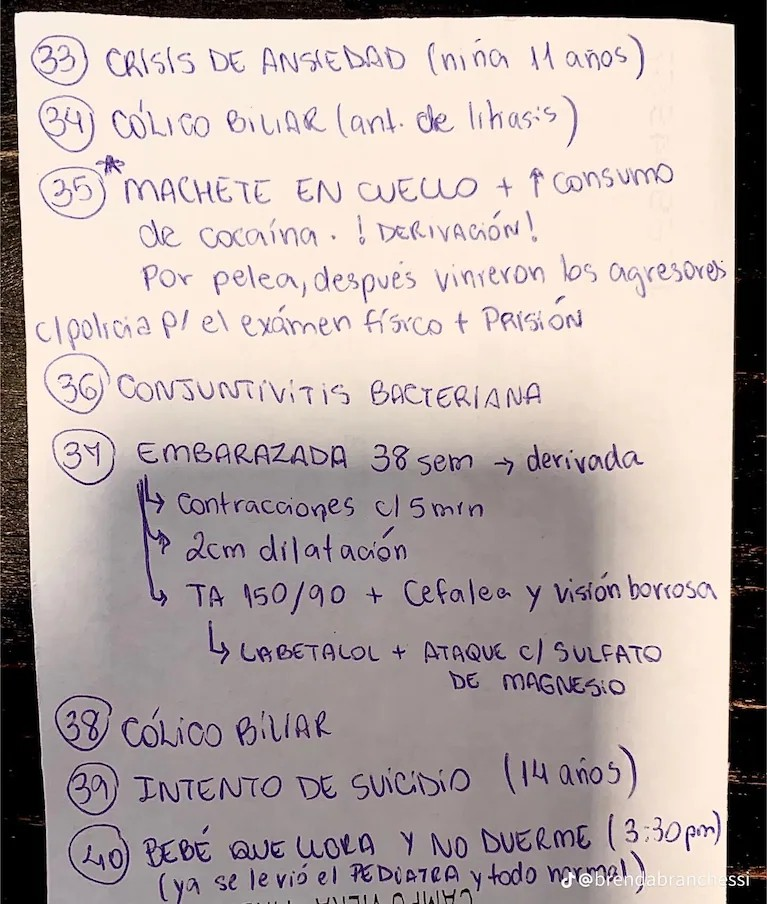 33 CRISIS DE ANSIEDAD (niña 11 años)
34 CÓLICO BILIAR (ant. de litiasis)
35 * MACHETE EN CUELLO + ↑ consumo
de cocaína. ! DERIVACIÓN!
Por pelea, después vinieron los agresores
c/policia p/ el exámen físico + PRISIÓN
36 CONJUNTIVITIS BACTERIANA
37 EMBARAZADA 38 sem → derivada
↳ Contracciones c/ 5 min
↳ 2cm dilatación
↳ TA 150/90 + Cefalea y visión borrosa
↳ LABETALOL + ATAQUE C/ SULFATO
DE MAGNESIO
38 CÓLICO BILIAR
39 INTENTO DE SUICIDIO (14 años)
40 BEBÉ QUE LLORA Y NO DUERME (3:30 pm)
(ya se le vió el PEDIATRA y todo normal)
@brendabranchessi